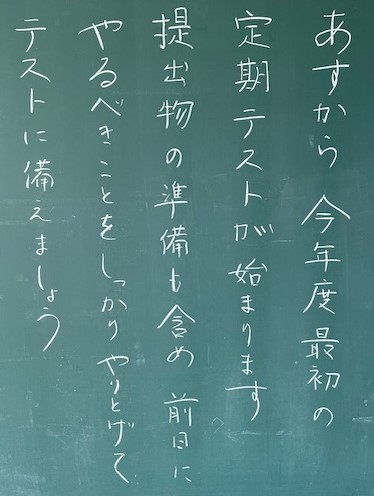 あすから 今年度最初の
定期テストが始まります
提出物の準備も含め 前日に
やるべきことをしっかりやりとげて
テストに備えましょう